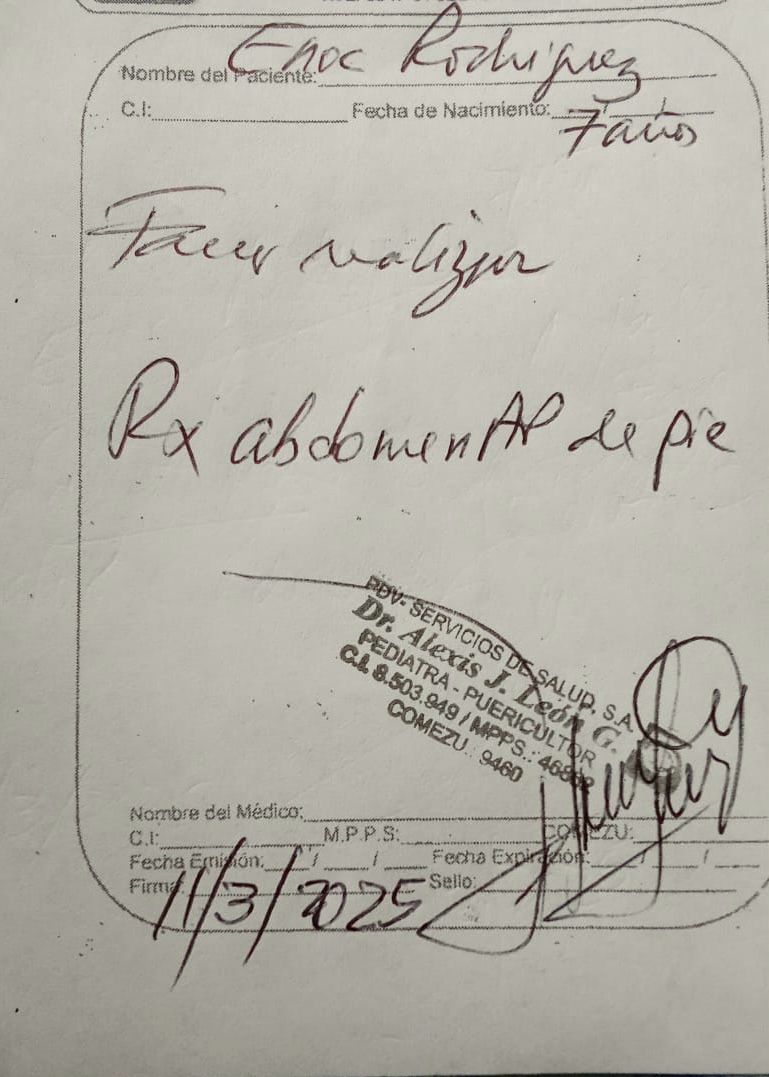 Enoc Rodriguez
Nombre del Paciente:
C.I: Fecha de Nacimiento: / /
7 años
Favor realizar
Rx abdomen AP de pie
PDV- SERVICIOS DE SALUD, S.A.
Dr. Alexis J. León G.
PEDIATRA - PUERICULTOR
C.I. 8.503.949 / MPPS.:
COMEZU. 9460
Nombre del Médico:
C.I: M.P.P.S: COMEZU:
Fecha Emisión: / / Fecha Expiración: / /
Firma: Sello:
11/3/2025